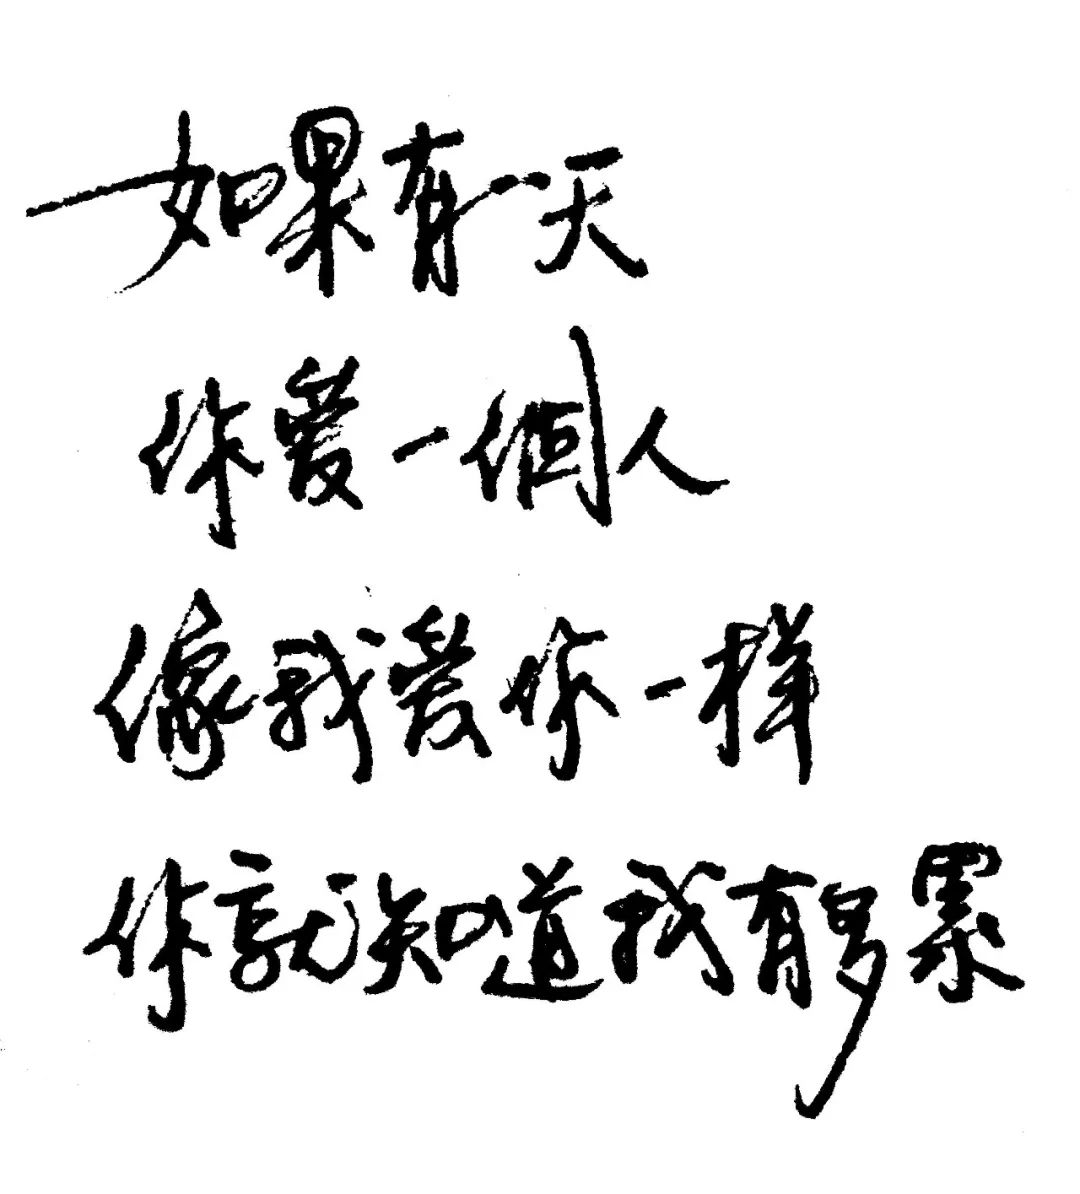 如果有一天
你愛一個人
像我愛你一样
你就知道我有多累